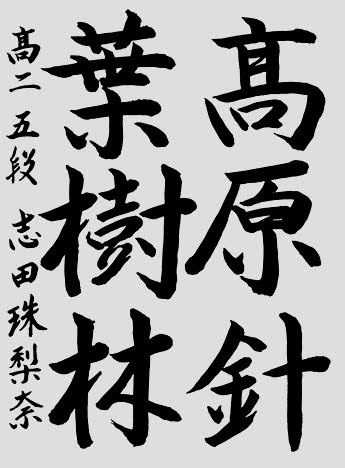 高原針
葉樹林
高二 五段 志田珠梨奈